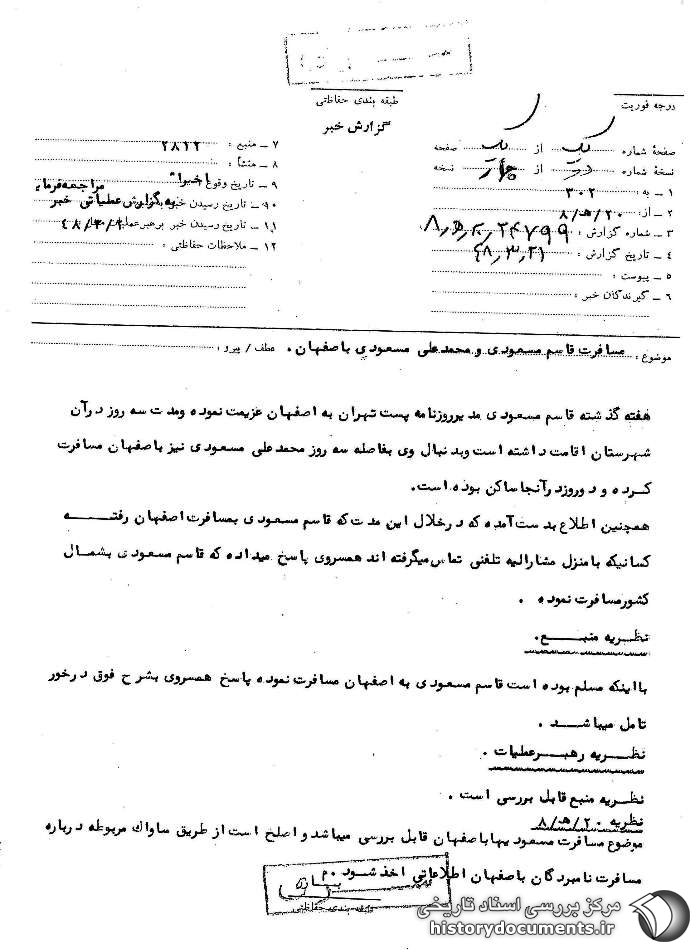 درجه فوریت
طبقه بندی حفاظتی
گزارش خبر
صفحهٔ شماره یک از یک صفحه
نسخهٔ شماره دو از چهار نسخه
۱ ـ به : ۳۰۲
۲ ـ از: ۲۰/ه/۸
۳ ـ شماره گزارش :
۴ ـ تاریخ گزارش : ۴۸٫۳٫۲۱
۵ ـ پیوست :
۶ ـ گیرندگان خبر :
۷ ـ منبع : ۲۸۲۲
۸ ـ منشأ :
۹ ـ تاریخ وقوع اخیرا"
۱۰ ـ تاریخ رسیدن خبر به
۱۱ ـ تاریخ رسیدن خبر برهبرعملیات
۱۲ ـ ملاحظات حفاظتی :
موضوع : مسافرت قاسم مسعودی و محمدعلی مسعودی باصفهان . عطف / پیرو :
هفته گذشته قاسم مسعودی مدیرروزنامه پست تهران به اصفهان عزیمت نموده ومدت سه روز درآن
شهرستان اقامت داشته است وبدنبال وی بفاصله سه روز محمدعلی مسعودی نیز باصفهان مسافرت
کرده و دوروزدرآنجاساکن بوده است.
همچنین اطلاع بدست آمده که درخلال این مدت که قاسم مسعودی بمسافرت اصفهان رفته
کسانیکه بامنزل مشارالیه تلفنی تماس میگرفته اند همسروی پاسخ میداده که قاسم مسعودی بشمال
کشورمسافرت نموده .
نظریه منبع.
بااینکه مسلم بوده است قاسم مسعودی به اصفهان مسافرت نموده پاسخ همسروی بشرح فوق درخور
تامل میباشد .
نظریه رهبرعملیات .
نظریه منبع قابل بررسی است .
نظریه ۲۰/ه/۸
موضوع مسافرت مسعودیهاباصفهان قابل بررسی میباشدواصلح است ازطریق ساواك مربوطه درباره
مسافرت نامبردگان باصفهان اطلاعاتی اخذشود .م
طبقه بندی حفاظتی
مرکز بررسی اسناد تاریخی
historydocuments.ir